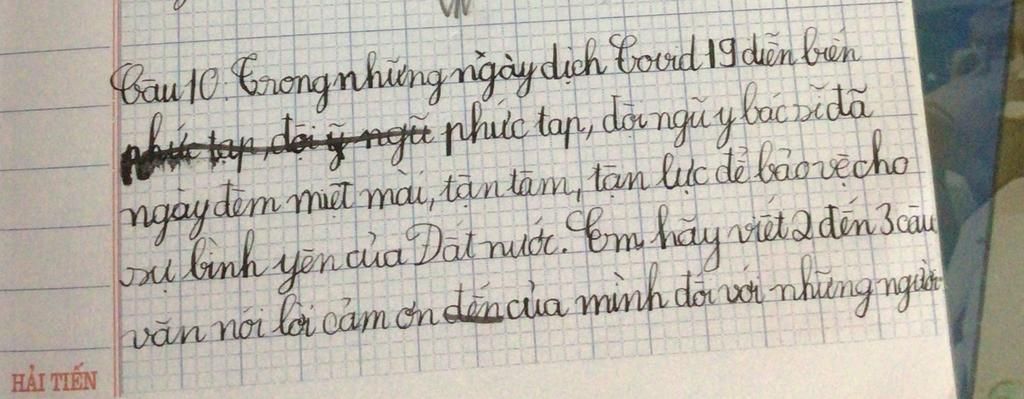 VN
Câu 10. Trong những ngày dịch Covid 19 diễn biến
phức tạp, đội y ngũ phức tạp, đội ngũ y bác sĩ đã
ngày đêm miệt mài, tận tâm, tận lực để bảo vệ cho
sự bình yên của Đất nước. Em hãy viết 2 đến 3 câu
văn nói lời cảm ơn đến của mình đối với những người
HẢI TIẾN